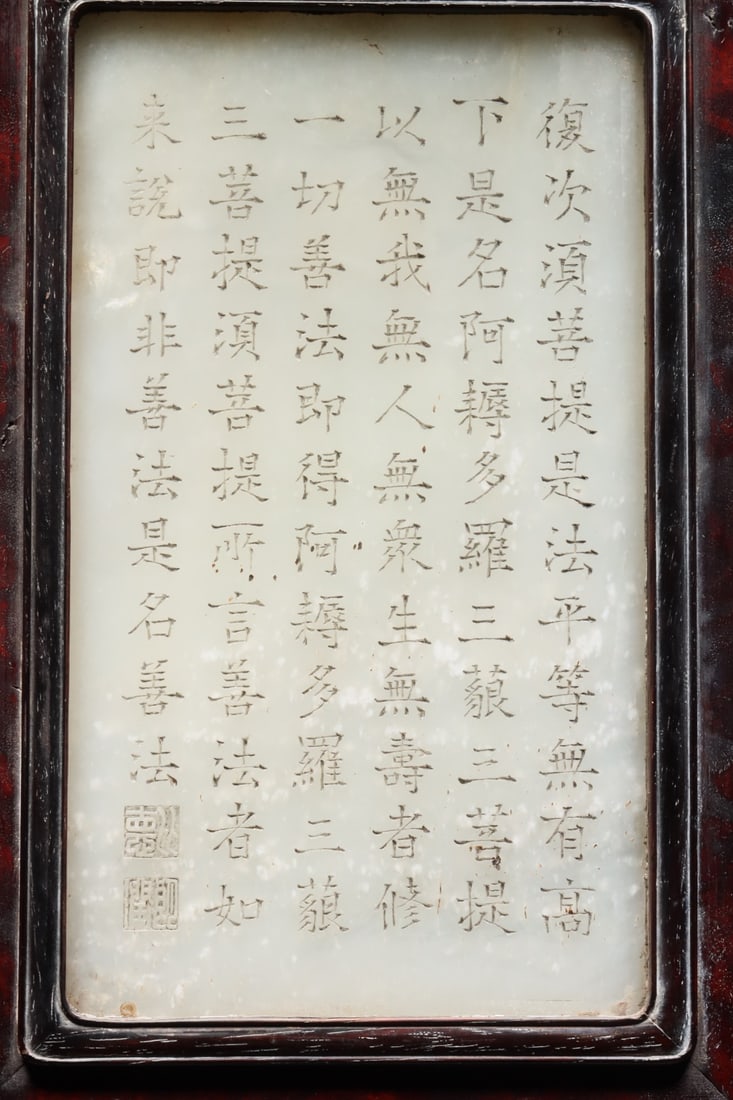 復次須菩提是法平等無有高
下是名阿耨多羅三藐三菩提
以無我無人無衆生無壽者修
一切善法即得阿耨多羅三藐
三菩提須菩提所言善法者如
来說即非善法是名善法